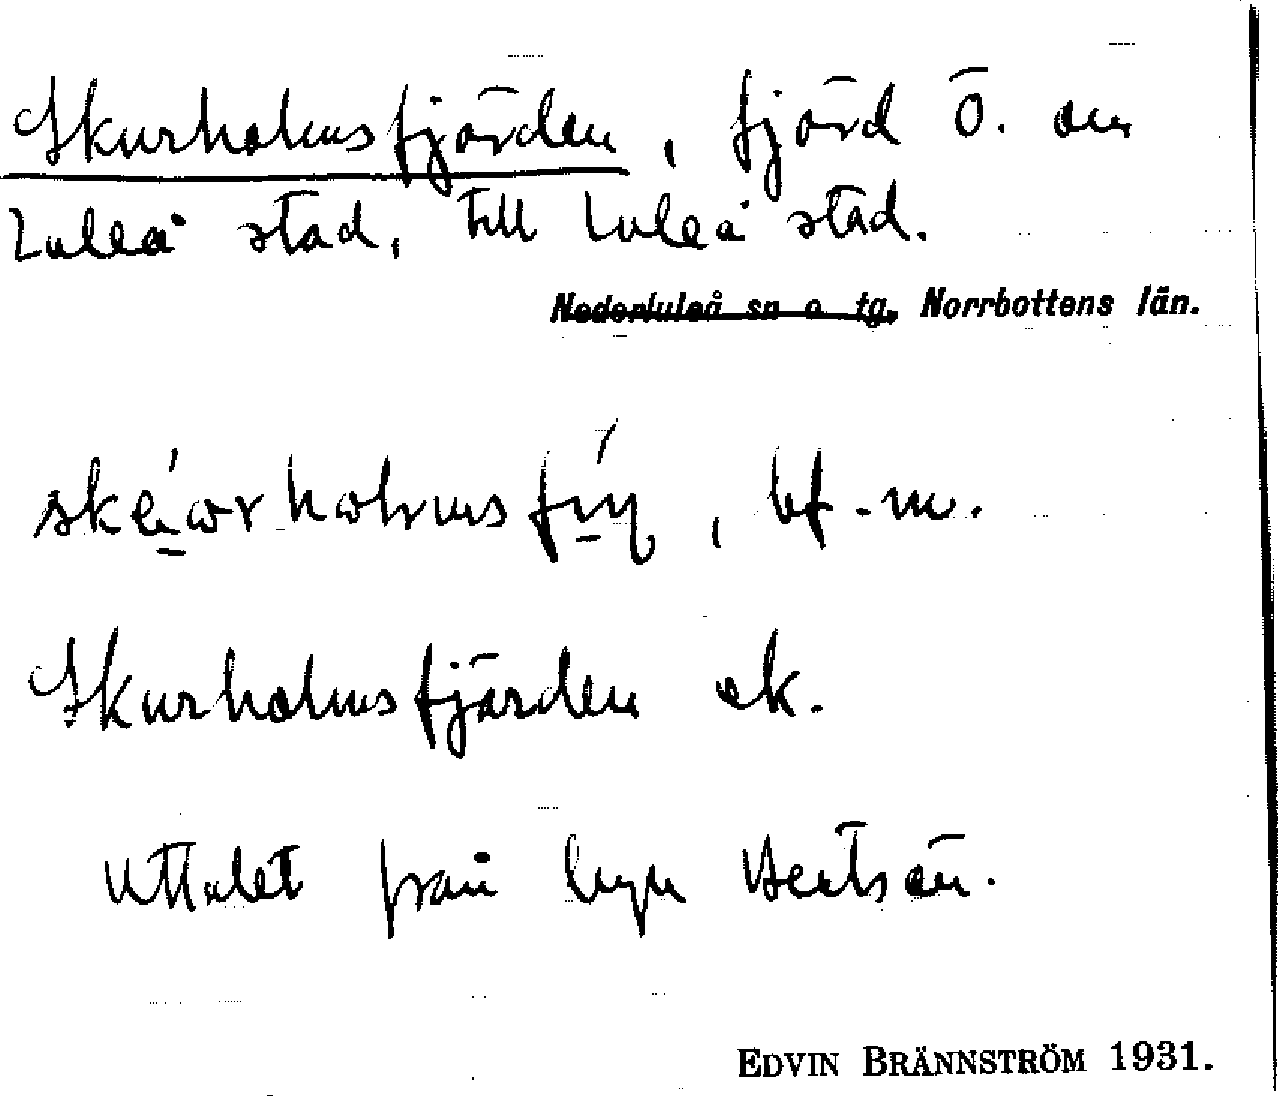 Skurholmsfjärden, fjärd Ö. om
Luleå stad, till Luleå stad.
Nederluleå sn o. tg. Norrbottens län.
bf. m.
Skurholmsfjärden ek.
Uttalet från byn
EDVIN BRÄNNSTRÖM 1931.